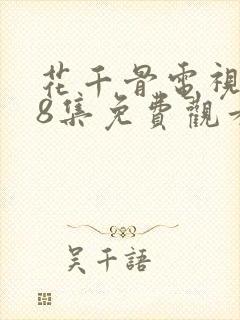 花千骨電視
8集免費觀
吳千語